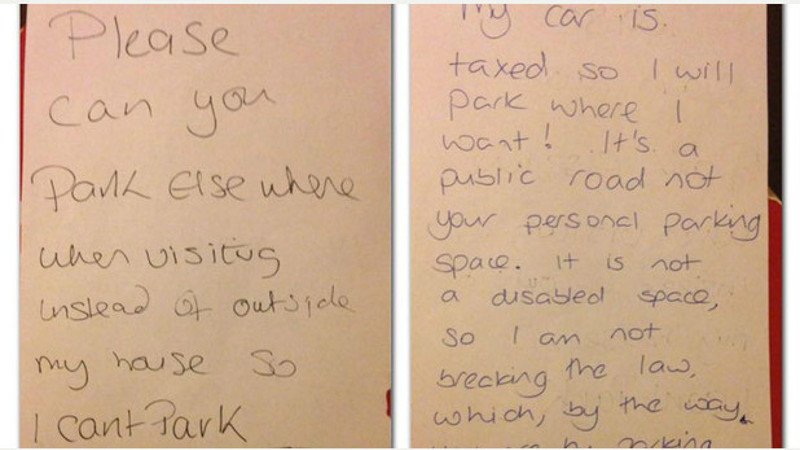 Please
can you
Park Else where
when visiting
instead of outside
my house so
I cant Park
My car is
taxed so I will
park where I
want! It's a
public road not
your personal parking
space. It is not
a disabled space,
so I am not
brecking the law,
which, by the way
parking